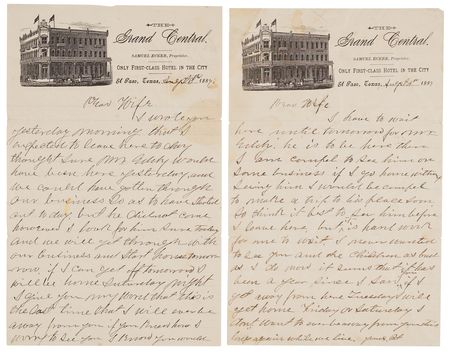 THE
Grand Central.
SAMUEL ECKER, Proprietor.
ONLY FIRST-CLASS HOTEL IN THE CITY
El Paso, Texas, 188
Dear Wife
I wrote you
yesterday morning that I
expected to leave here to day
thought sure Mr would
have been here yesterday and
we could have gotten through
our business so as to have started
out to day but he did not come
however I look for him sure today
and we will get through with
our business and start home tomor
row, if I can get off tomorrow I
will be home Saturday night
I give you my word that this is
the last time that I will ever be
away from you if you know how I
want to see you I know you would
THE
Grand Central.
SAMUEL ECKER, Proprietor.
ONLY FIRST-CLASS HOTEL IN THE CITY
El Paso, Texas, 188
Dear Wife
I have to wait
here until tomorrow for Mr
he is to be here then
I am compel to see him on
some business if I go home without
seeing him I would be compel
to make a trip to his place soon
so think it best to see him before
I leave here, but it is hard work
for me to wait I never wanted
to see you and the children as bad
as I do now it seems that it has
been a year since I saw you if I
get away from here Tuesday will
get home Friday or Saturday I
dont want to ever be away from you this
long again while we live